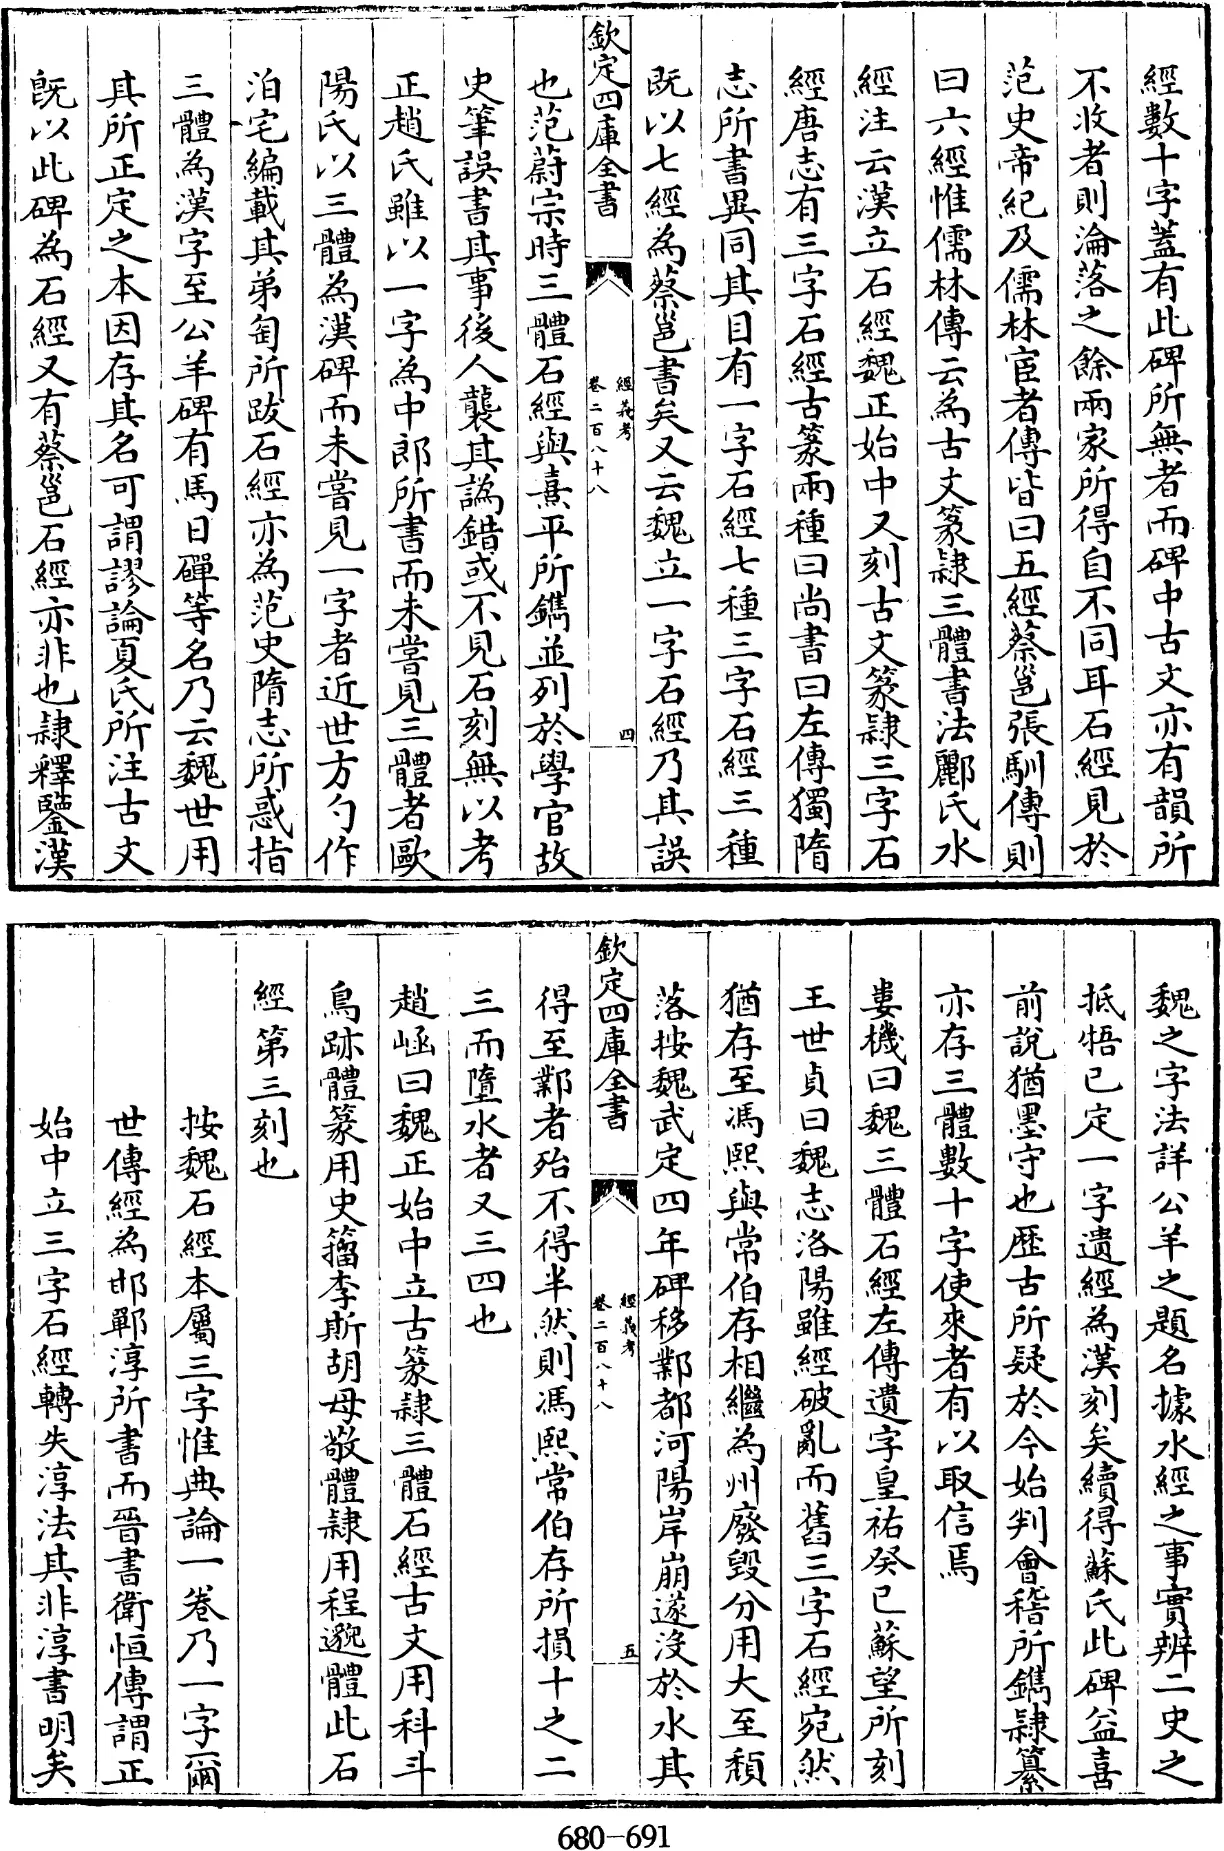 經數十字蓋有此碑所無者而碑中古文亦有韻所
不收者則淪落之餘兩家所得自不同耳石經見於
范史帝紀及儒林宦者傳皆曰五經蔡邕張馴傳則
曰六經惟儒林傳云為古文篆隷三體書法酈氏水
經注云漢立石經魏正始中又刻古文篆隷三字石
經唐志有三字石經古篆兩種曰尚書曰左傳獨隋
志所書異同其目有一字石經七種三字石經三種
既以七經為蔡邕書矣又云魏立一字石經乃其誤
欽定四庫全書
經義考
卷二百八十八
四
也范蔚宗時三體石經與熹平所鐫並列於學官故
史筆誤書其事後人襲其譌錯或不見石刻無以考
正趙氏雖以一字為中郎所書而未嘗見三體者歐
陽氏以三體為漢碑而未嘗見一字者近世方勺作
泊宅編載其弟匋所跋石經亦為范史隋志所惑指
三體為漢字至公羊碑有馬日磾等名乃云魏世用
其所正定之本因存其名可謂謬論夏氏所注古文
既以此碑為石經又有蔡邕石經亦非也隷釋鑒漢
魏之字法詳公羊之題名據水經之事實辨二史之
抵牾已定一字遺經為漢刻矣續得蘇氏此碑益喜
前說猶墨守也歷古所疑於今始判會稽所鐫隷纂
亦存三體數十字使來者有以取信焉
婁機曰魏三體石經左傳遺字皇祐癸巳蘇望所刻
王世貞曰魏志洛陽雖經破亂而舊三字石經宛然
猶存至馮熙與常伯存相繼為州廢毀分用大至頹
落按魏武定四年碑移鄴都河陽岸崩遂没於水其
欽定四庫全書
經義考
卷二百八十八
五
得至鄴者殆不得半然則馮熙常伯存所損十之二
三而墮水者又三四也
趙崡曰魏正始中立古篆隷三體石經古文用科斗
鳥跡體篆用史籀李斯胡母敬體隷用程邈體此石
經第三刻也
按魏石經本屬三字惟典論一卷乃一字爾
世傳經為邯鄲淳所書而晉書衛恒傳謂正
始中立三字石經轉失淳法其非淳書明矣
680-691